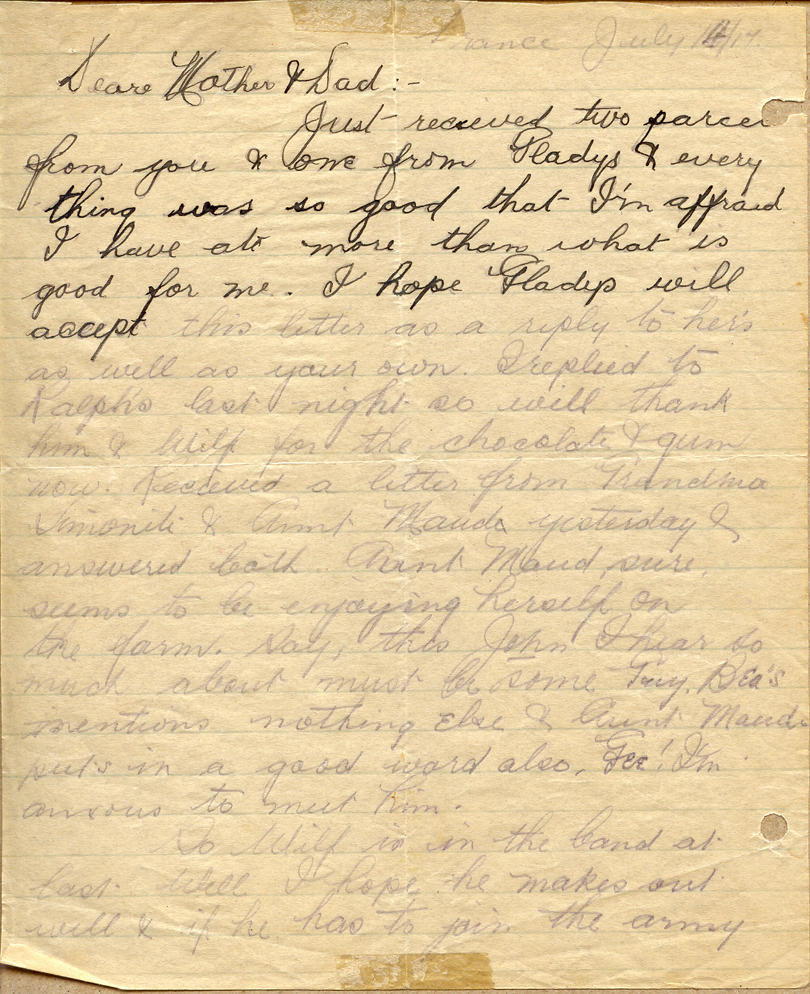 France July 14/17.
Deare Mother & Dad:-
Just recieved two parcel
from you & one from Gladys & every
thing was so good that I'm affraid
I have ate more than what is
good for me. I hope Gladys will
accept this letter as a reply to her's
as well as your own. I replied to
Ralph's last night so will thank
him & Wilf for the chocolate & gum
now. Recieved a letter from Grandma
Simonite & Aunt Maude yesterday &
answered both. Aunt Maud sure
seems to be enjoying herself on
the farm. Say, this John I hear so
much about must be some Guy, Bea's
mentions nothing else & Aunt Maude
put's in a good word also, Gee! I'm
anxous to meet him.
So Wilf is in the band at
last. Well I hope he makes out
will & if he has to join the army